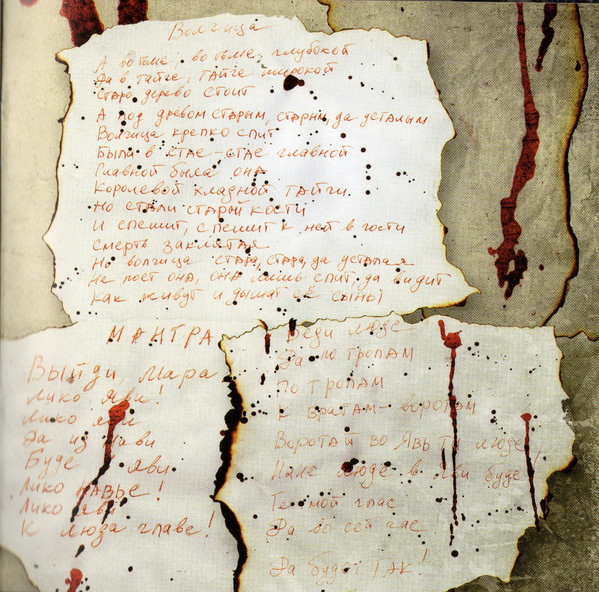 Волчица
А во тьме, во тьме глубокой
Да в тайге, тайге широкой
Старо дерево стоит
А под древом старым, старым, да усталым
Волчица крепко спит
Была в стае - стае главной
Главной была она
Королевой хладной тайги.
Но стали стары кости
И спешит, спешит к ней в гости
Смерть заклятая
Но волчица стара, стара, да усталая
Не поёт она, она лишь спит да видит
Как живут и дышат её сыны
МАНТРА
Выйди, Мара
Лико яви!
Лико яви
Да из нави
Буде яви
Лико навье!
Лико яви
К люза главе!
Веди люде
Да по тропам
По тропам
К вратам - воротам
Воротай во Явь ти люде
Ныне люде в Яви буде!
Те мой глас
Да во сей час!
Да будет так!